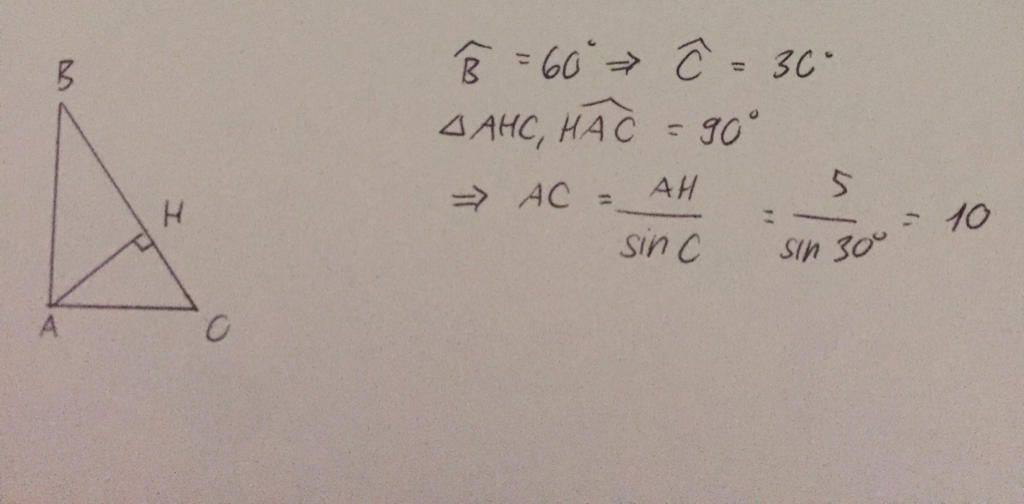 B
H
A
C
B̂ = 60° ⇒ Ĉ = 30°
△AHC, HÂC = 90°
⇒ AC = AH / sin C = 5 / sin 30° = 10